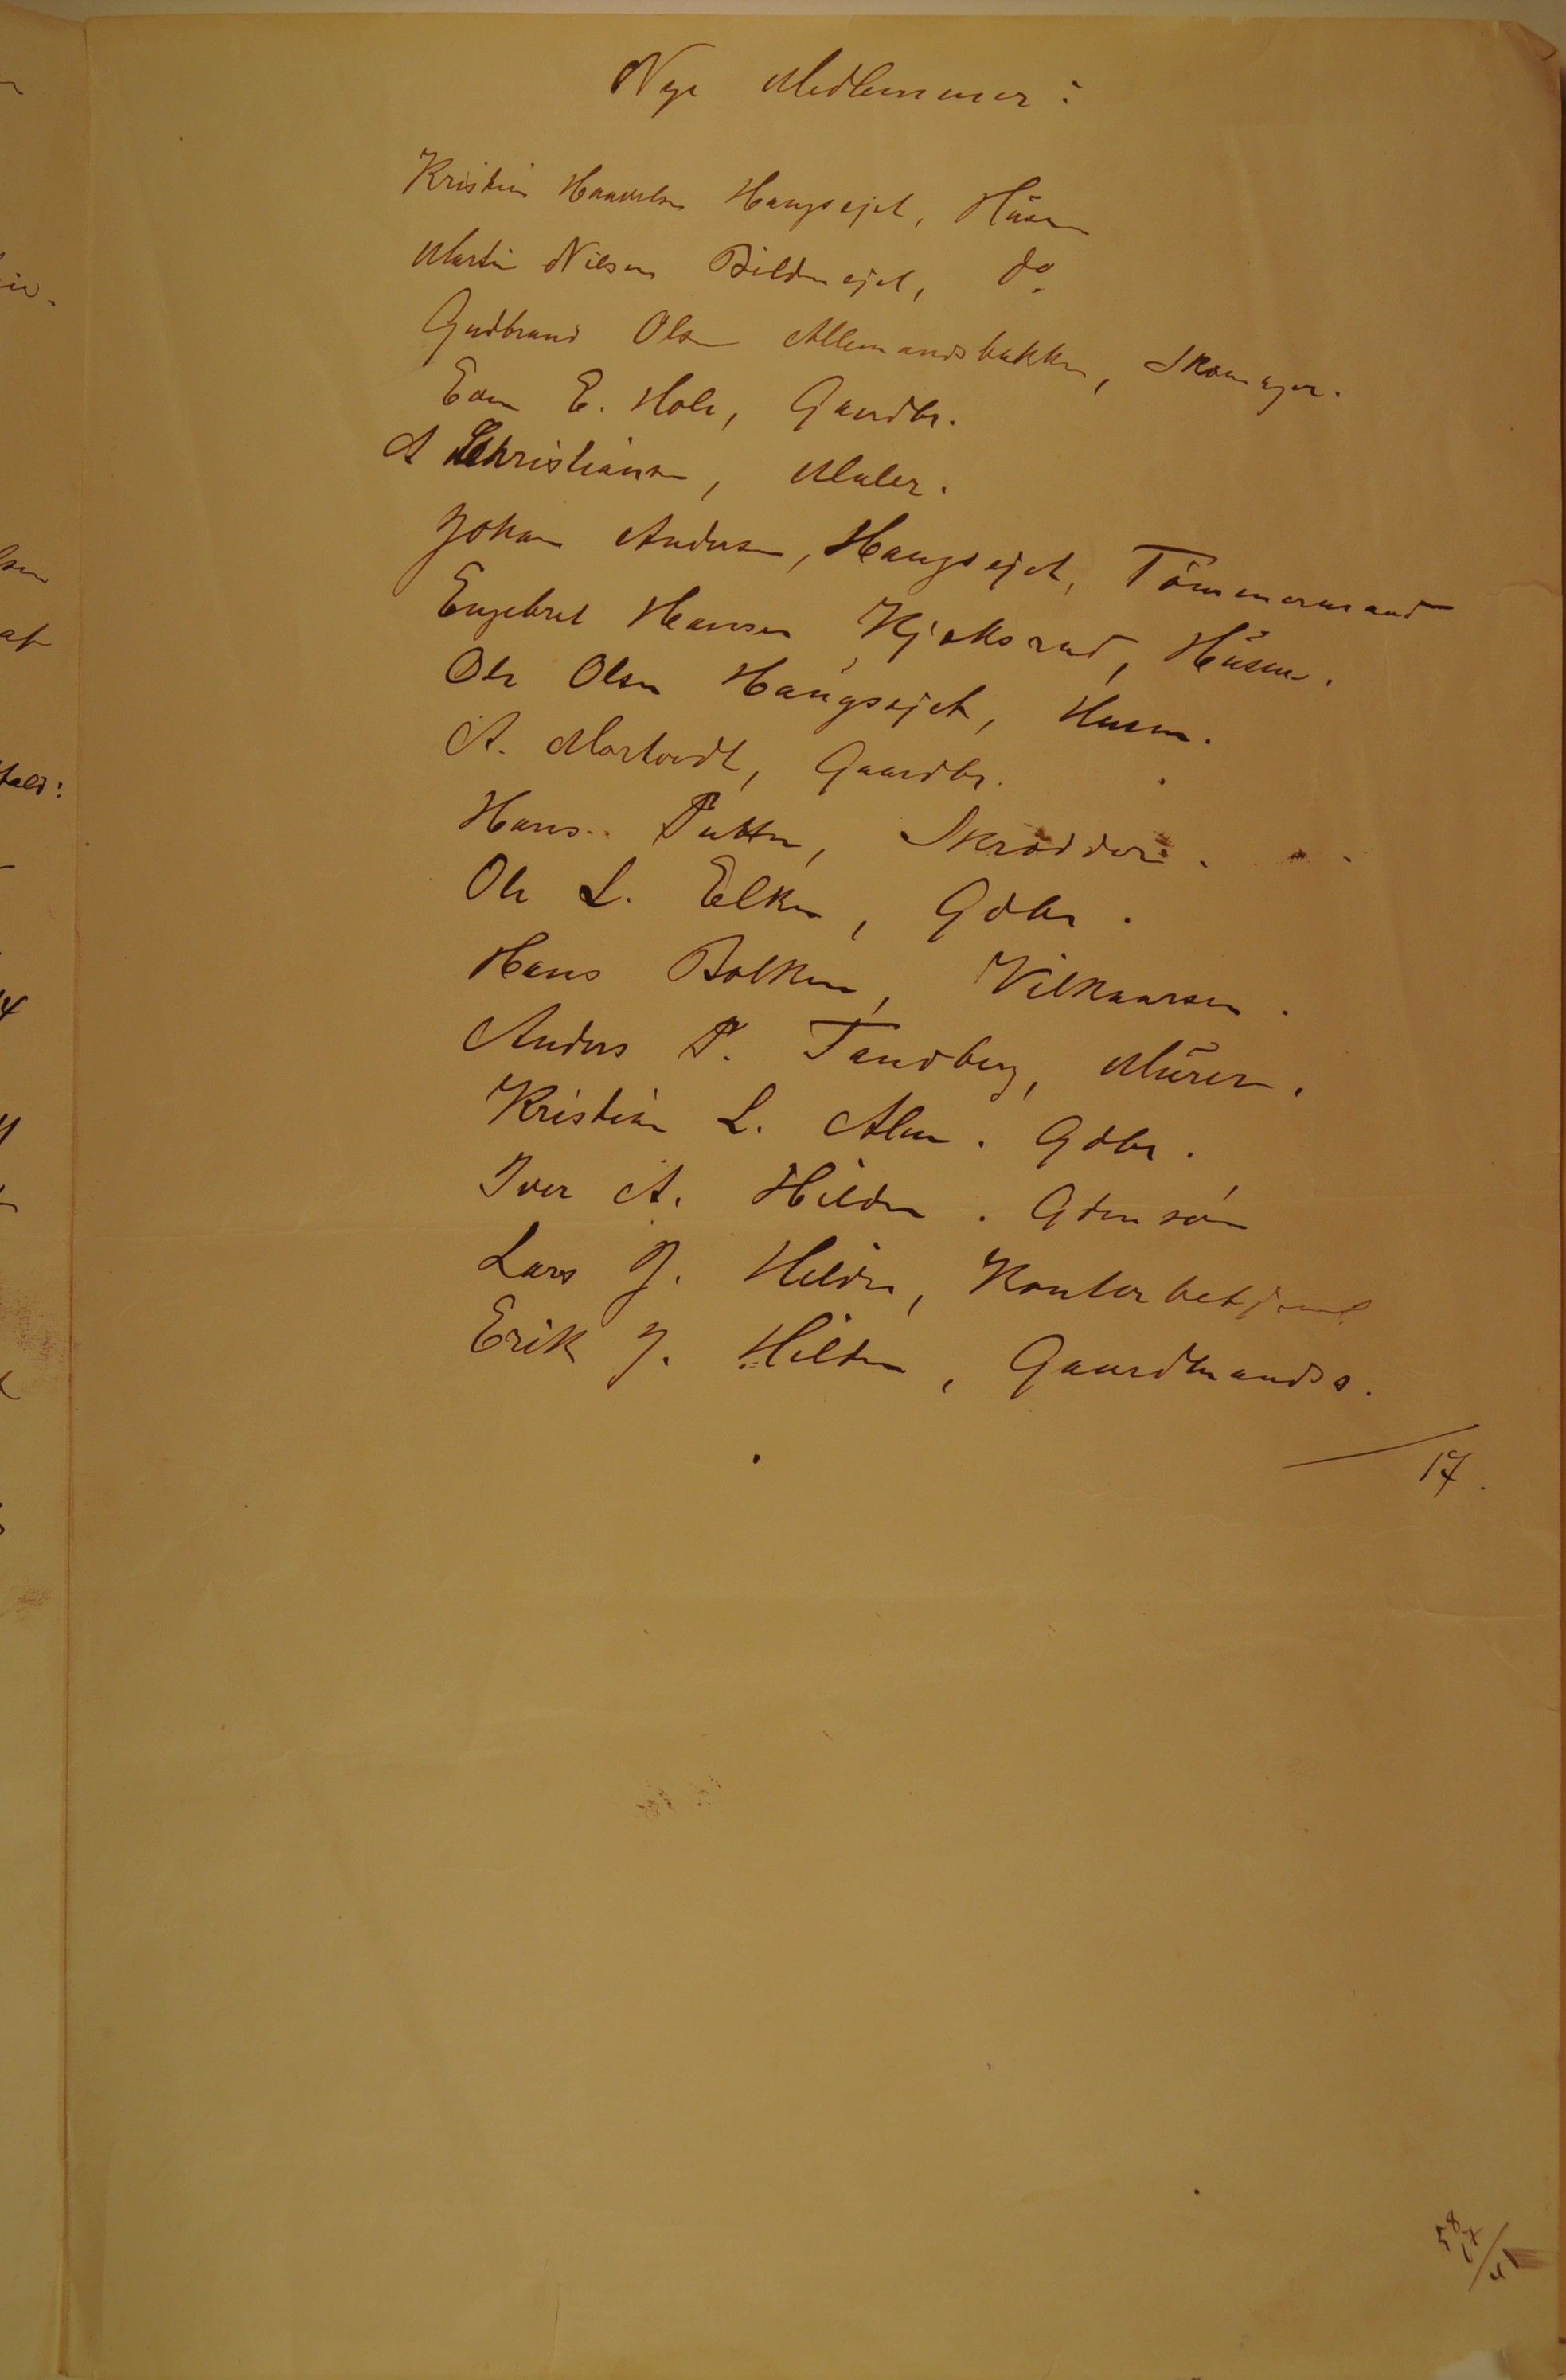 Nye Medlemmer:
Kristian Haavelsen Haugsejet, Husm
Martin Nilsen Bildenejet, do.
Gudbrand Olsen Allemandsbakken, Skomager.
Even E. Hole, Gaardbr.
A Christiansen, Maler.
Johan Andersen, Haugsejet, Tömmermand
Engebret Hansen Kjeksrud, Husm.
Ole Olsen Haugsejet, Husm.
A. Mortvedt, Gaardbr.
Hans Putten, Skrædder.
Ole L. Elken, Gdbr.
Hans Bolken, Vilkaarsm.
Anders P. Tandberg, Murer.
Kristian L. Alm. Gdbr.
Iver A. Hilden. Gdmsön
Lars J. Hilden, Kontorbetjent
Erik J. Hilden, Gaardmands.
17.
58
17
41